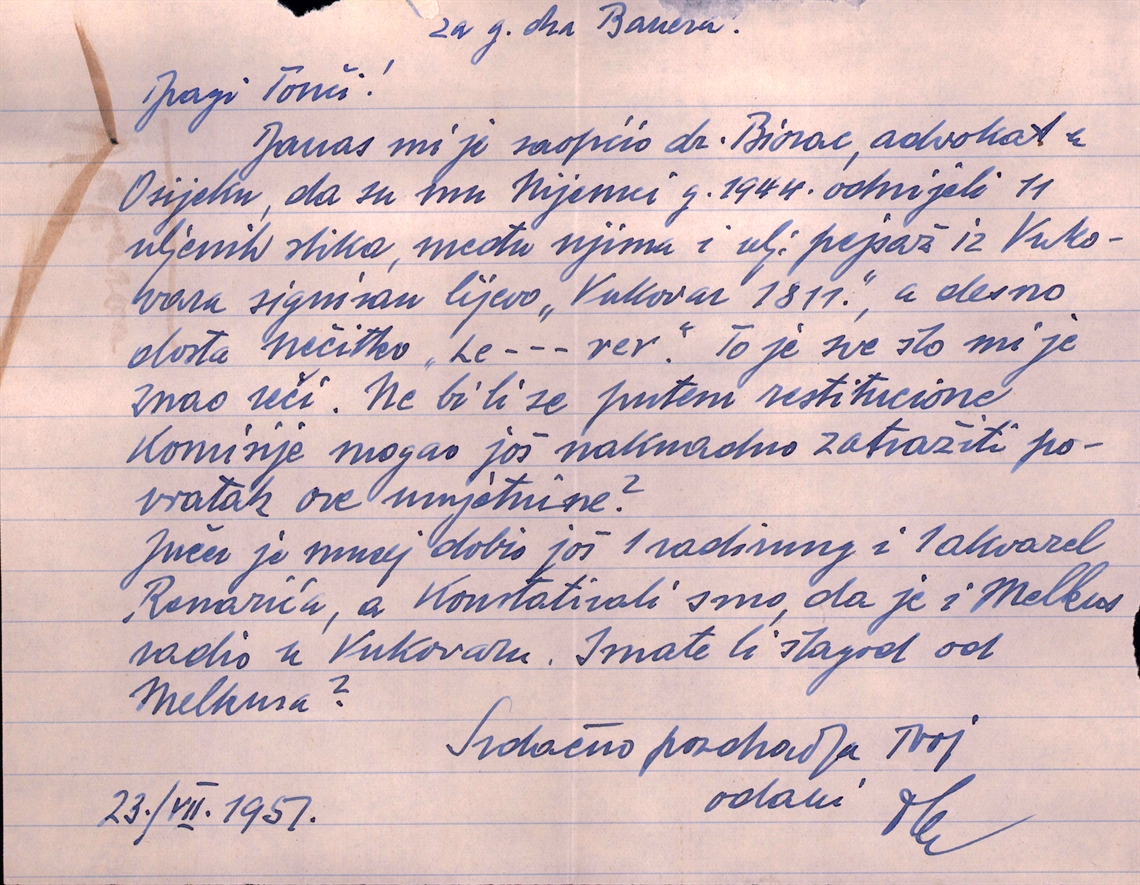 za g. dra Bauera.
Dragi Tonči!
Danas mi je saopćio dr. Biorac, advokat u
Osijeku, da su mu Nijemci g. 1944. odnijeli 11
uljenih slika, među njima i ulj. pejsaž iz Vuko-
vara signiran lijevo „Vukovar 1811.", a desno
dosta nečitko „Le---rer." To je sve što mi je
znao reči. Ne bi li se putem restitucione
komisije mogao još naknadno zatražiti po-
vratak ove umjetnine?
Jučer je muzej dobio još 1 radirung i 1 akvarel
Renarića, a konstatirali smo, da je i Melkus
radio u Vukovaru. Imate li štagod od
Melkusa?
Srdačno pozdravlja Tvoj
odani
23./VII. 1957.